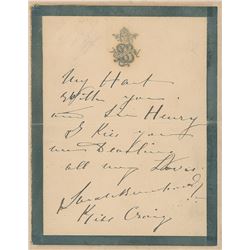 My Hart
with you
and Sir Henry
I Kiss you
and Dearling
all my Love
Sarah Bernhardt
Kiss Craig